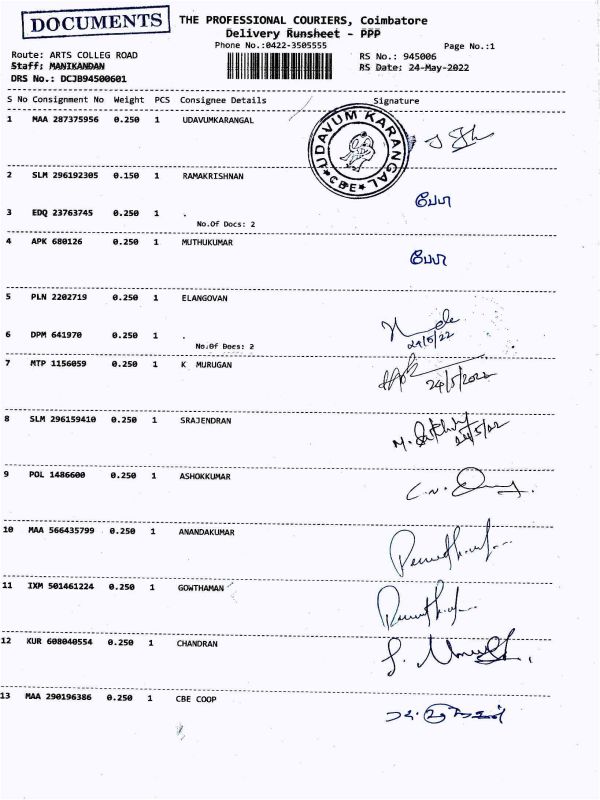 DOCUMENTS
THE PROFESSIONAL COURIERS, Coimbatore
Delivery Runsheet - PPP
Phone No.:0422-3505555
Page No.:1
Route: ARTS COLLEG ROAD
RS No.: 945006
Staff: MANIKANDAN
RS Date: 24-May-2022
DRS No.: DCJB94500601
S No Consignment No Weight PCS Consignee Details Signature
1 MAA 287375956 0.250 1 UDAVUMKARANGAL
UDAVUM KARANGAL
★ CBE ★
2 SLM 296192305 0.150 1 RAMAKRISHNAN
3 EDQ 23763745 0.250 1 .
No.Of Docs: 2
4 APK 680126 0.250 1 MUTHUKUMAR
5 PLN 2202719 0.250 1 ELANGOVAN
24/5/22
6 DPM 641970 0.250 1 .
No.Of Docs: 2
7 MTP 1156059 0.250 1 K MURUGAN
24/5/2022
8 SLM 296159410 0.250 1 SRAJENDRAN
24/5/22
9 POL 1486600 0.250 1 ASHOKKUMAR
10 MAA 566435799 0.250 1 ANANDAKUMAR
11 IXM 501461224 0.250 1 GOWTHAMAN
12 KUR 608040554 0.250 1 CHANDRAN
13 MAA 290196386 0.250 1 CBE COOP